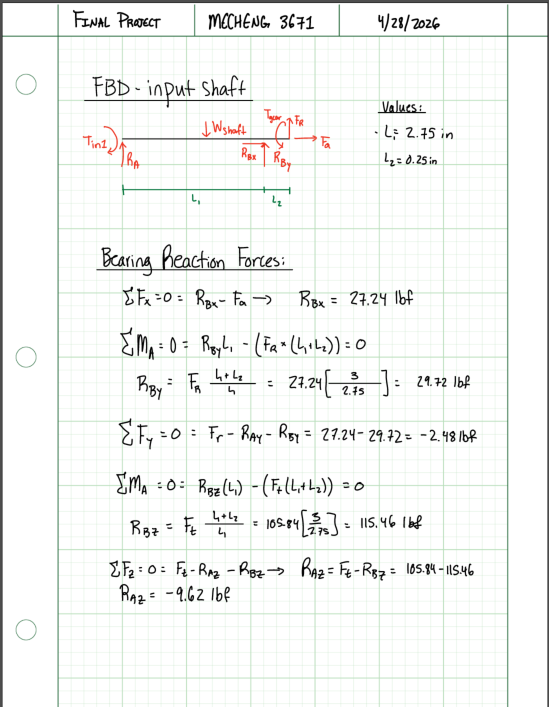 FINAL PROJECT
MECHENG 3671
4/28/2026
FBD - input shaft
Values:
- L₁ = 2.75 in
L₂ = 0.25 in
Tin1
R_A
↓ Wshaft
Tgear
F_R
R_Bx
R_By
Fa
L₁
L₂
Bearing Reaction Forces:
ΣFx = 0 = R_Bx - Fa → R_Bx = 27.24 lbf
ΣM_A = 0 = R_By L₁ - (F_R * (L₁+L₂)) = 0
R_By = F_R (L₁+L₂)/L₁ = 27.24 [3/2.75] = 29.72 lbf
ΣFy = 0 = Fr - R_Ay - R_By = 27.24 - 29.72 = -2.48 lbf
ΣM_A = 0 = R_Bz (L₁) - (Ft (L₁+L₂)) = 0
R_Bz = Ft (L₁+L₂)/L₁ = 105.84 [3/2.75] = 115.46 lbf
ΣFz = 0 = Ft - R_Az - R_Bz → R_Az = Ft - R_Bz = 105.84 - 115.46
R_Az = -9.62 lbf